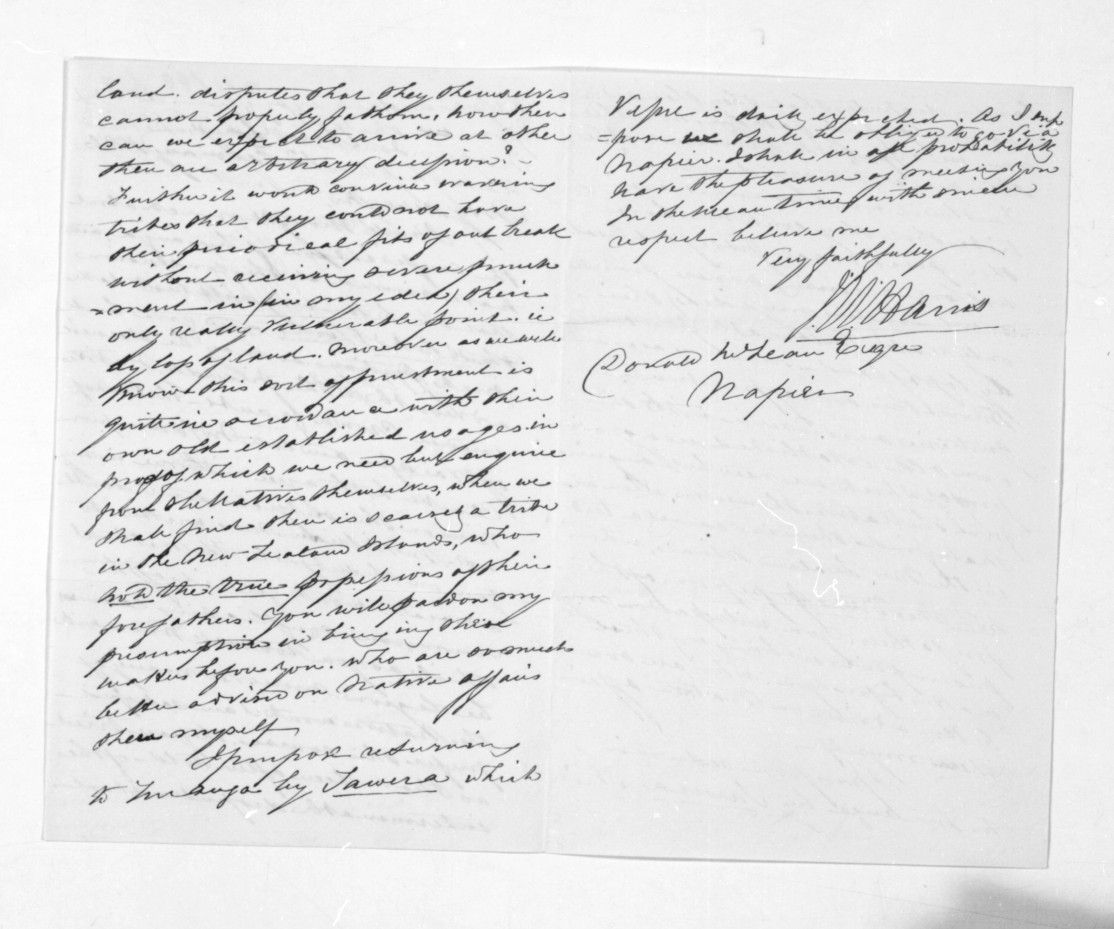 land. disputes that they themselves
cannot properly fathom, how then
can we expect to arrive at other
then an arbitrary decission?
Further it would convince wavering
tribes that they could not have
their periodical fits of outbreak
without receiving severe punish
=ment in (in my idea) their
only really vulnerable point. ie
by loss of land. Moreover as we well
know this sort of punishment is
quite in accordance with their
own old established usages in
proof of which we need but enquire
from the Natives themselves, when we
shall find there is scarcely a tribe
in the New Zealand Islands, who
hold the true possessions of their
forefathers. You will pardon my
presumption in bringing these
matters before you. who are so much
better advised on Native affairs
then myself
I purpose returning
to Turanga by Tawera which
Vessel is daily expected. As I sup
=pose we shall be obliged to go via
Napier. I shall in all probability
have the pleasure of meeting you
In the mean time, with sincere
respect believe me
Very faithfully
J W Harris
Donald McLean Esqre
Napier